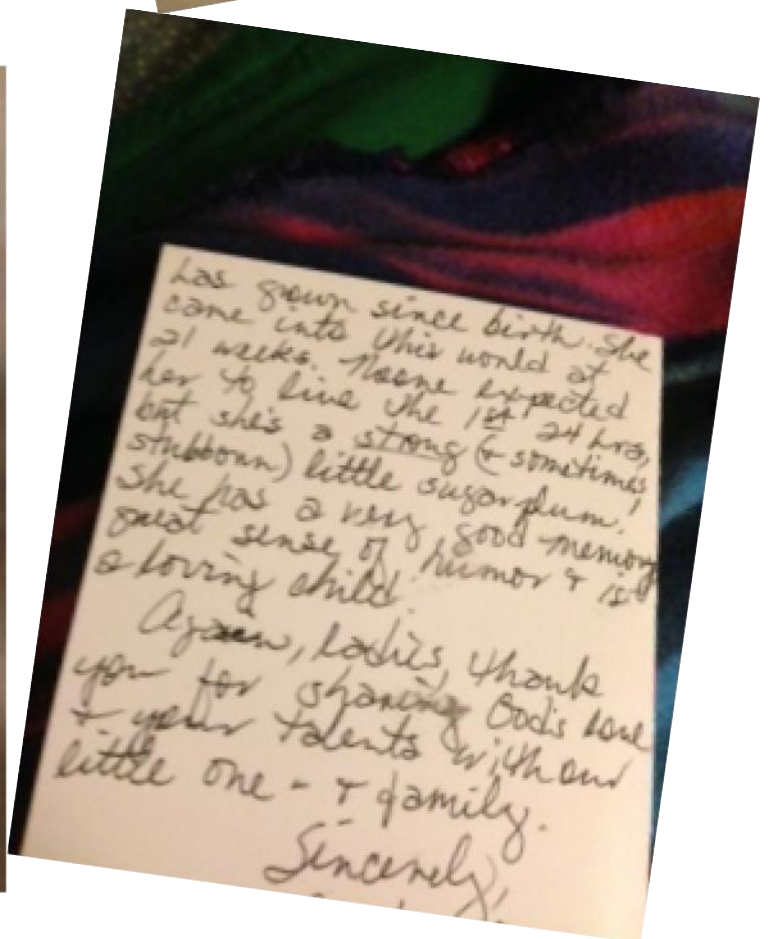 has grown since birth. She
came into this world at
21 weeks. Noone expected
her to live the 1st 24 hrs,
but she's a strong (& sometimes
stubborn) little sugarplum.
She has a very good memory,
great sense of humor & is
a loving child.
Again, ladies, thank
you for sharing God's love
& your talents with our
little one - & family.
Sincerely,